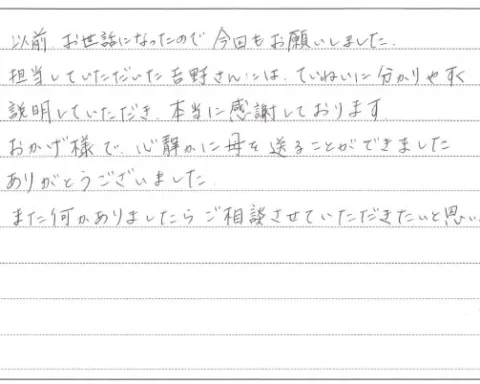 以前、お世話になったので今回もお願いしました。
担当していただいた吉野さんには、ていねいに分かりやすく
説明していただき、本当に感謝しております。
おかげ様で、心静かに母を送ることができました
ありがとうございました。
また何かありましたらご相談させていただきたいと思い